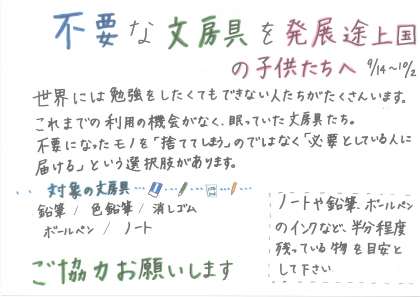 不要な文房具を発展途上国
の子供たちへ 9/14~10/2
世界には勉強をしたくてもできない人たちがたくさんいます。
これまでの利用の機会がなく、眠っていた文房具たち。
不要になったモノを「捨ててしまう」のではなく「必要としている人に
届ける」という選択肢があります。
対象の文房具
鉛筆 / 色鉛筆 / 消しゴム
ボールペン / ノート
ノートや鉛筆、ボールペン
のインクなど、半分程度
残っている物を目安と
して下さい
ご協力お願いします